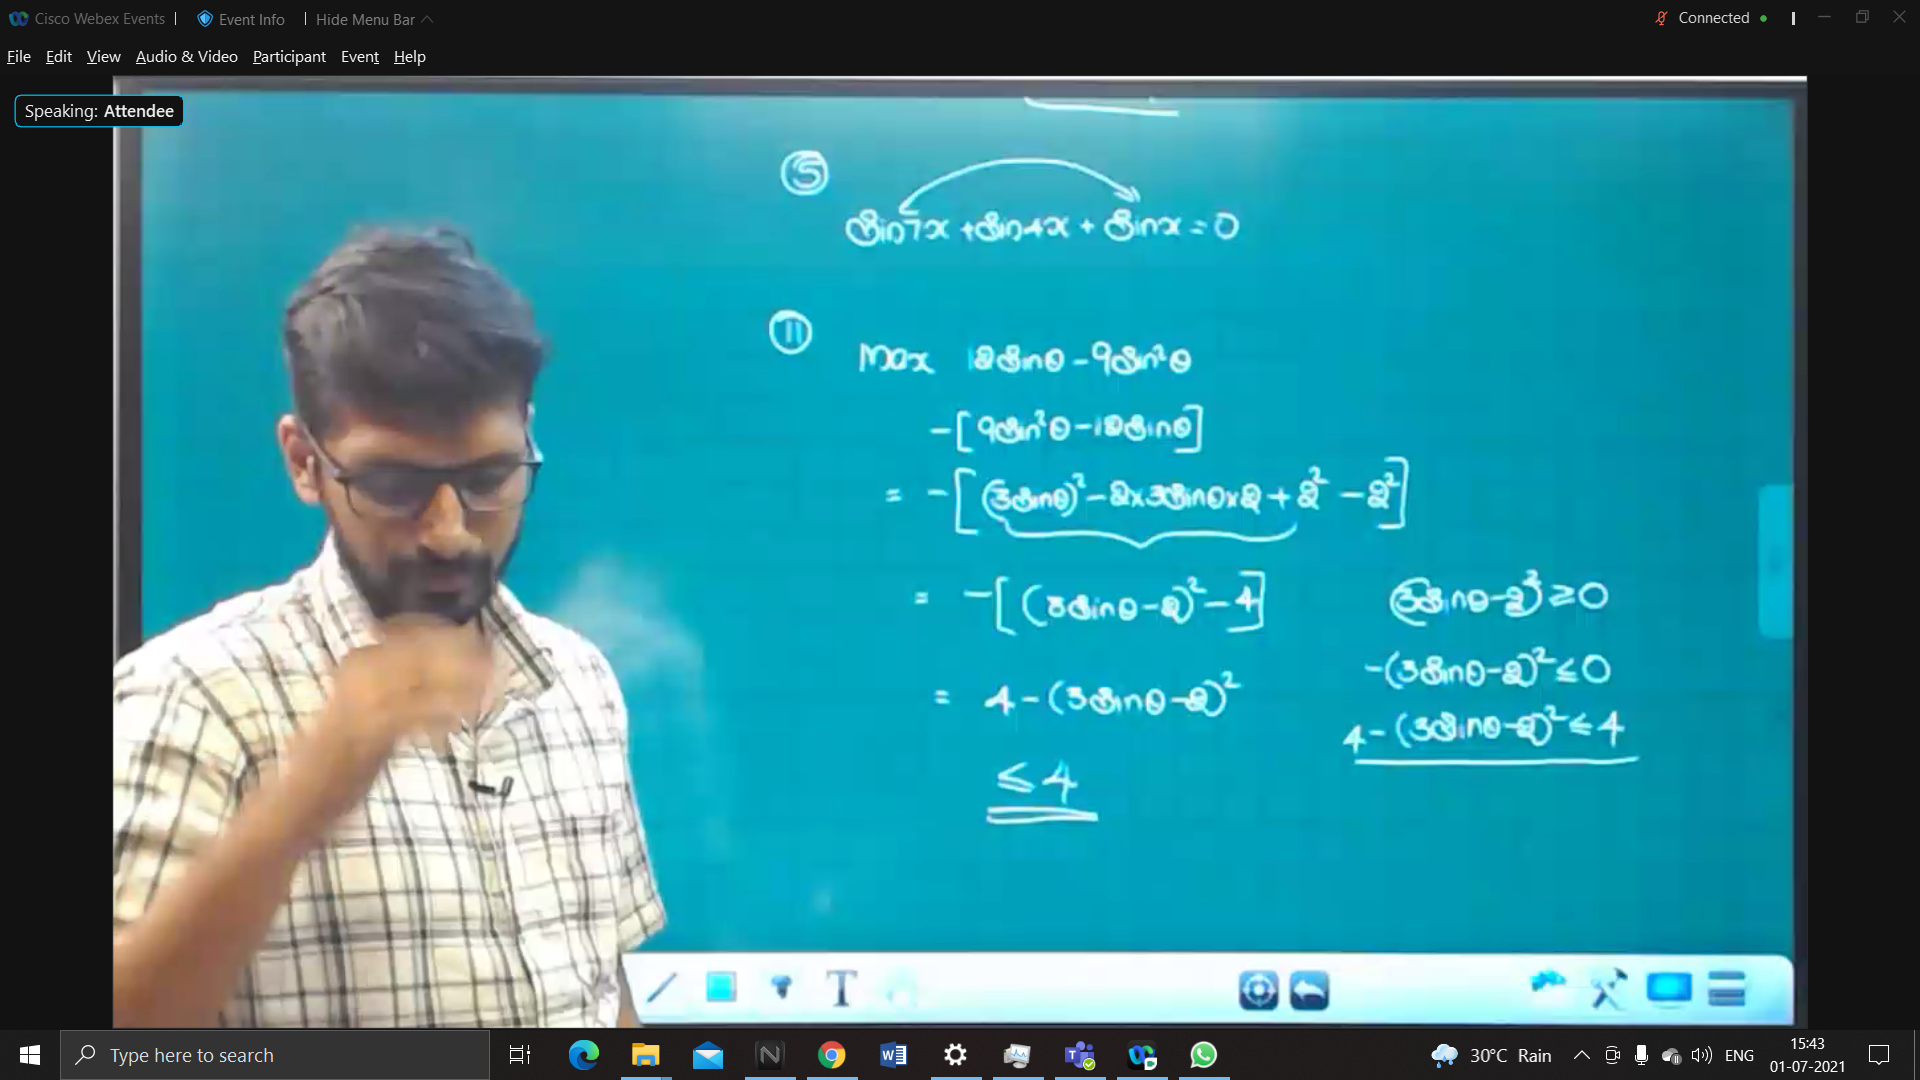 Cisco Webex Events | Event Info | Hide Menu Bar Connected
File Edit View Audio & Video Participant Event Help
Speaking: Attendee
⑤
Sin7x + Sin4x + Sinx = 0
⑪
Max 12Sinθ - 9Sin²θ
-[9Sin²θ - 12Sinθ]
= -[(3Sinθ)² - 2×3Sinθ×2 + 2² - 2²]
= -[(3Sinθ-2)² - 4]
= 4 - (3Sinθ-2)²
≤ 4
(3Sinθ-2)² ≥ 0
-(3Sinθ-2)² ≤ 0
4 - (3Sinθ-2)² ≤ 4
T
Type here to search
30°C Rain
ENG
15:43
01-07-2021